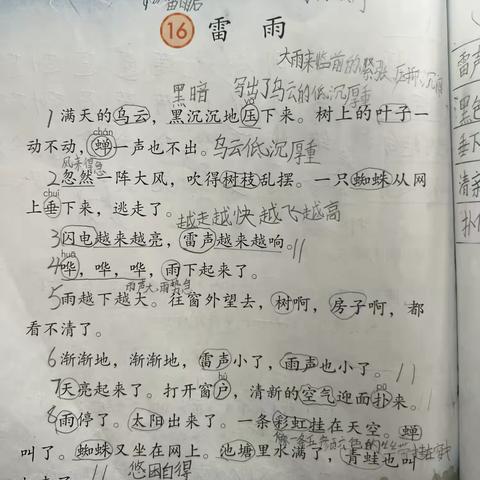 16 雷雨
大雨来临前的紧张 压抑 沉闷
黑暗 写出了乌云的低,沉厚重
1满天的乌云，黑沉沉地压下来。树上的叶子一
chán
动不动，蝉一声也不出。乌云低沉厚重
2忽然一阵大风，吹得树枝乱摆。一只蜘蛛从网
chuí
上垂下来，逃走了。越走越快 越飞越高
3闪电越来越亮，雷声越来越响。
huā
4哗，哗，哗，雨下起来了。
雨声大,雨势急
5雨越下越大。往窗外望去，树啊，房子啊，都
看不清了。
6渐渐地，渐渐地，雷声小了，雨声也小了。
hù pū
7天亮起来了。打开窗户，清新的空气迎面扑来。
8雨停了。太阳出来了。一条彩虹挂在天空。蝉
叫了。蜘蛛又坐在网上。池塘里水满了，青蛙也叫
悠闲自得
雷声
黑色
垂下
清新
扑